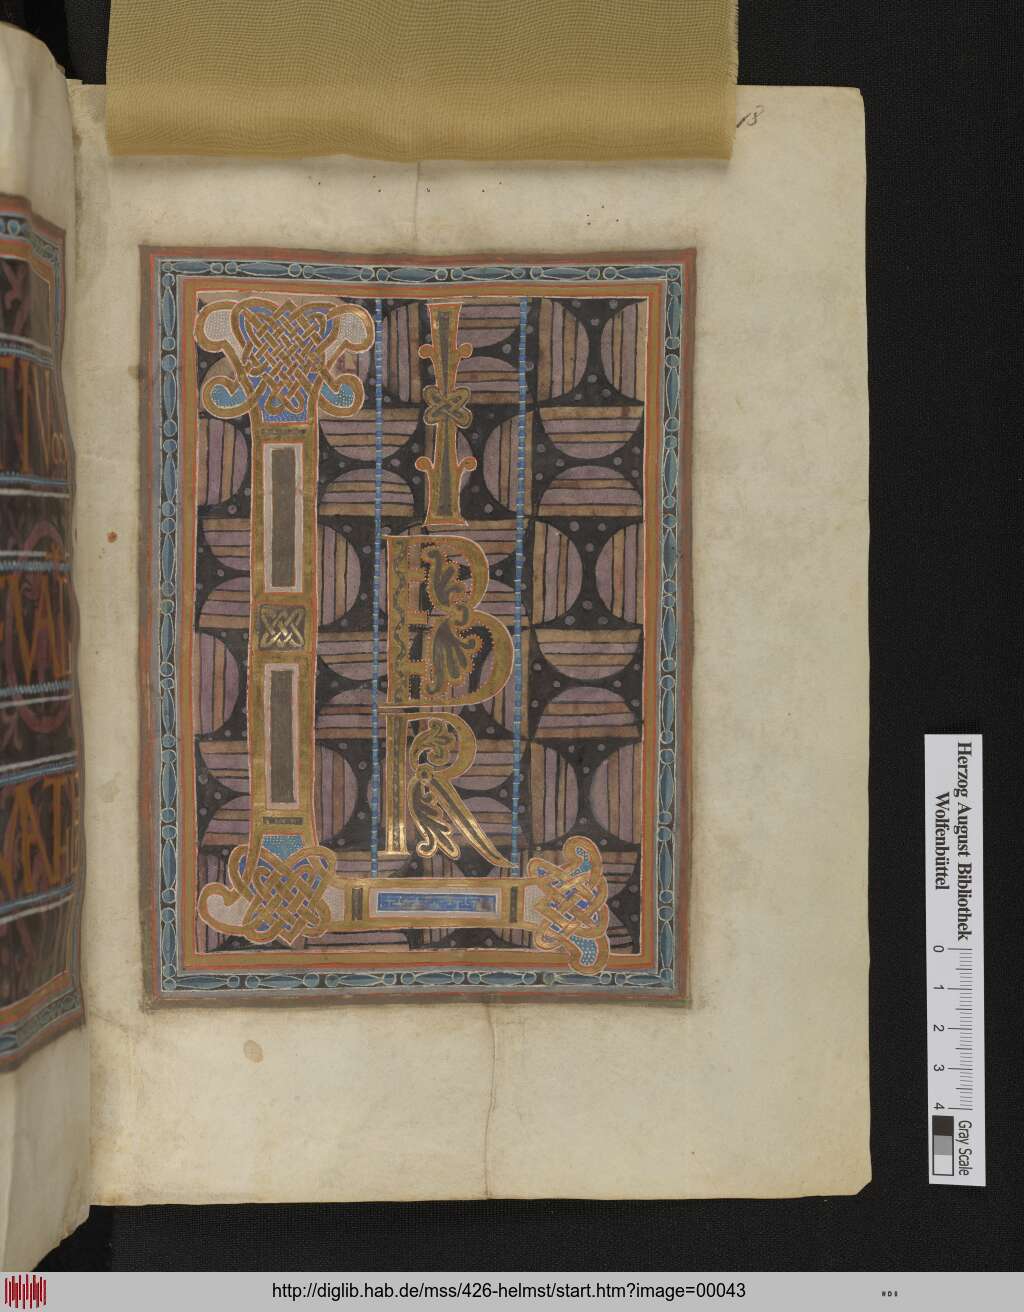 18
L
I
B
R
Herzog August Bibliothek
Wolfenbüttel
0 1 2 3 4
Gray Scale
http://diglib.hab.de/mss/426-helmst/start.htm?image=00043